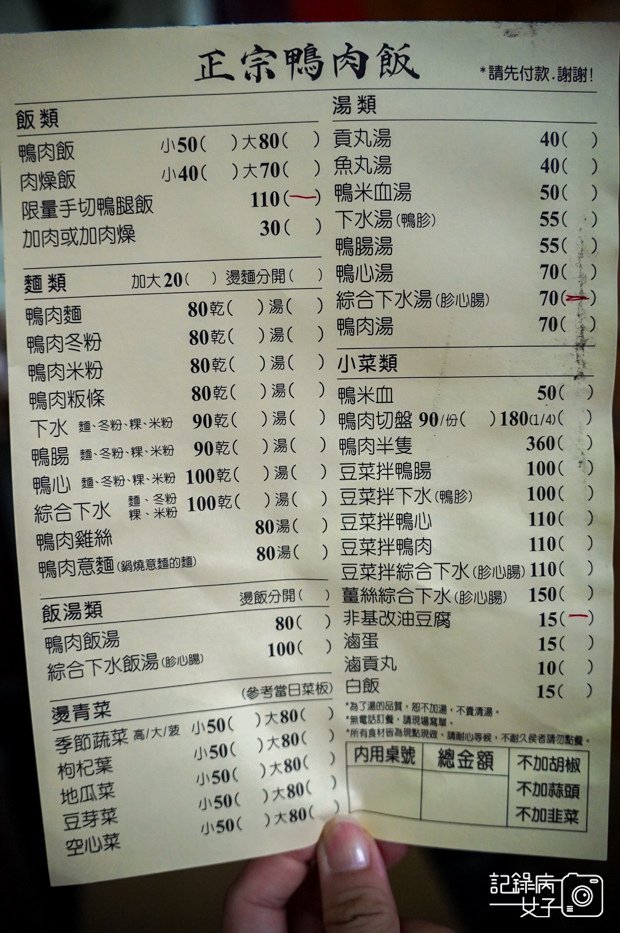 正宗鴨肉飯
*請先付款.謝謝!
飯類
鴨肉飯 小50( )大80( )
肉燥飯 小40( )大70( )
限量手切鴨腿飯 110(一)
加肉或加肉燥 30( )
麵類 加大20( )燙麵分開( )
鴨肉麵 80乾( )湯( )
鴨肉冬粉 80乾( )湯( )
鴨肉米粉 80乾( )湯( )
鴨肉粄條 80乾( )湯( )
下水 麵、冬粉、粿、米粉 90乾( )湯( )
鴨腸 麵、冬粉、粿、米粉 90乾( )湯( )
鴨心 麵、冬粉、粿、米粉 100乾( )湯( )
綜合下水 麵、冬粉粿、米粉 100乾( )湯( )
鴨肉雞絲 80湯( )
鴨肉意麵(鍋燒意麵的麵) 80湯( )
飯湯類 燙飯分開( )
鴨肉飯湯 80( )
綜合下水飯湯(胗心腸) 100( )
燙青菜 (參考當日菜板)
季節蔬菜 高/大/菠 小50( )大80( )
枸杞葉 小50( )大80( )
地瓜菜 小50( )大80( )
豆芽菜 小50( )大80( )
空心菜 小50( )大80( )
湯類
貢丸湯 40( )
魚丸湯 40( )
鴨米血湯 50( )
下水湯(鴨胗) 55( )
鴨腸湯 55( )
鴨心湯 70( )
綜合下水湯(胗心腸) 70(一)
鴨肉湯 70( )
小菜類
鴨米血 50( )
鴨肉切盤 90/份( )180(1/4)( )
鴨肉半隻 360( )
豆菜拌鴨腸 100( )
豆菜拌下水(鴨胗) 100( )
豆菜拌鴨心 110( )
豆菜拌鴨肉 110( )
豆菜拌綜合下水(胗心腸) 110( )
薑絲綜合下水(胗心腸) 150( )
非基改油豆腐 15(一)
滷蛋 15( )
滷貢丸 10( )
白飯 15( )
*為了湯的品質,恕不加湯,不賣清湯。
*無電話訂餐,請現場寫單。
*所有食材皆為現點現做,請耐心等候,不耐久侯者請勿點餐。
內用桌號 總金額 不加胡椒
不加蒜頭
不加韭菜
記錄病
女子